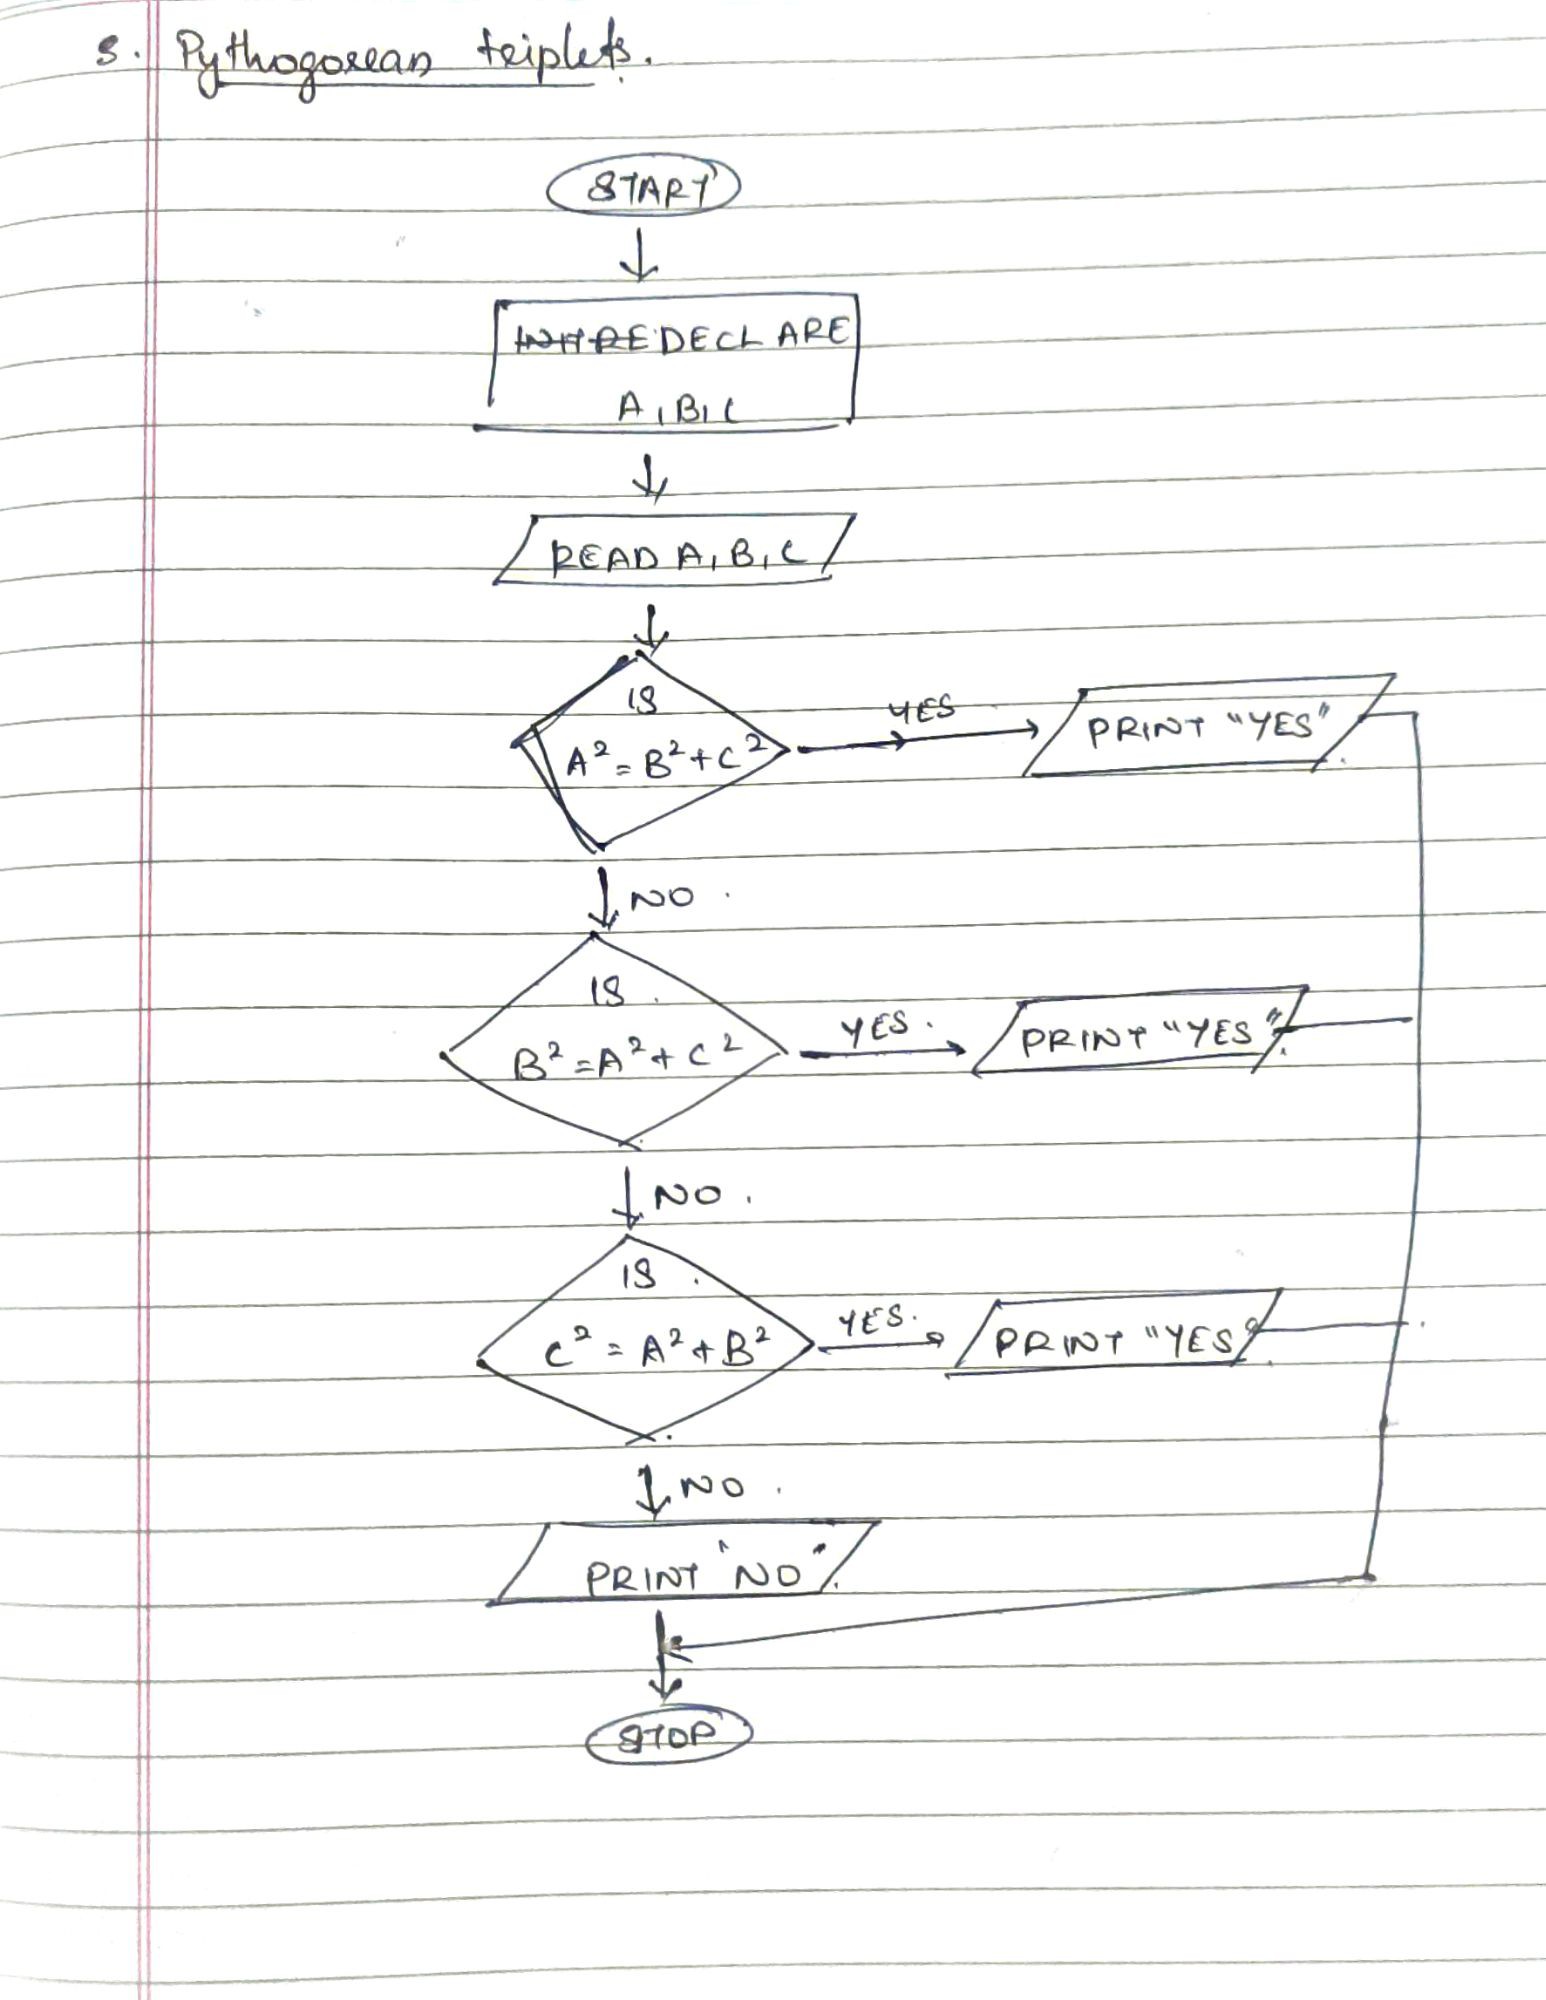 3. Pythogorean triplets.
START
DECLARE
A, B, C
READ A, B, C
IS
A² = B² + C²
YES
PRINT "YES"
NO
IS
B² = A² + C²
YES
PRINT "YES"
NO
IS
C² = A² + B²
YES
PRINT "YES"
NO
PRINT "NO"
STOP